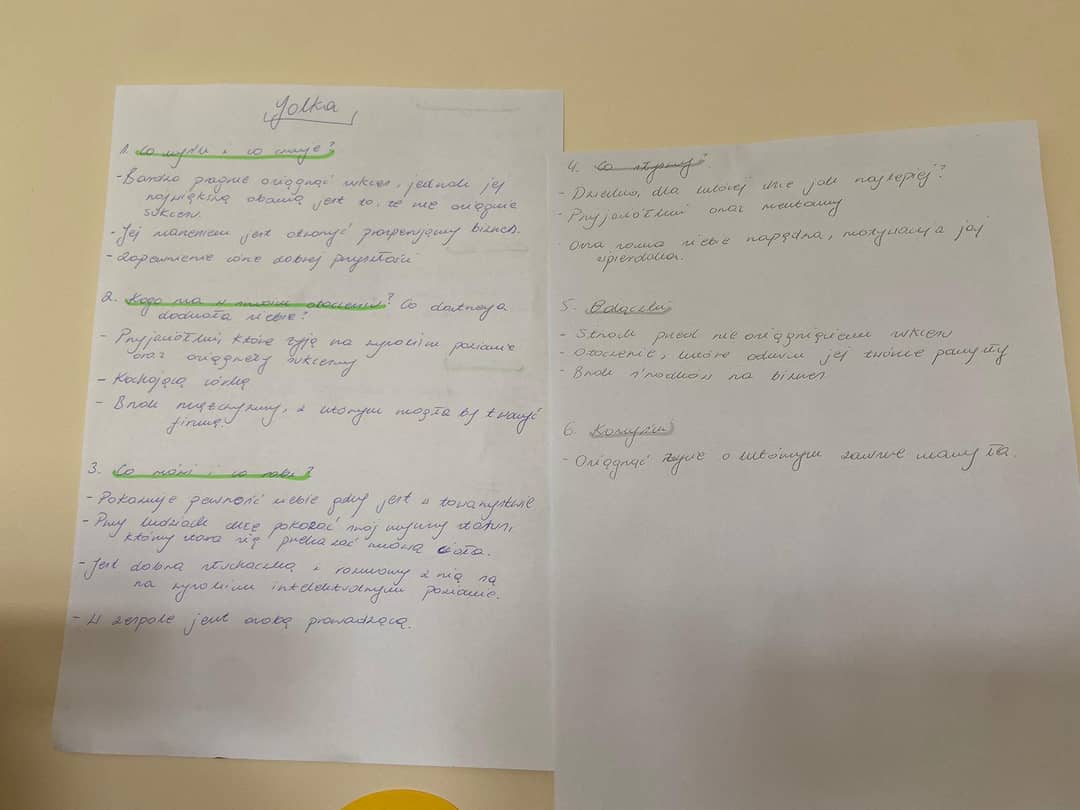 Jolka
1. Co myśli i co czuje?
- Bardzo pragnie osiągnąć sukces, jednak jej
największą obawą jest to, że nie osiągnie
sukcesu.
- Jej marzeniem jest otworzyć prosperujący biznes.
- Zapewnienie córce dobrej przyszłości
2. Kogo ma w swoim otoczeniu? Co dostrzega
dookoła siebie?
- Przyjaciółki, które żyją na wysokim poziomie
oraz osiągnęły sukcesy
- Kochającą córkę
- Brak mężczyzny, z którym mogła by tworzyć
firmę.
3. Co mówi i co robi?
- Pokazuje pewność siebie gdy jest w towarzystwie
- Przy ludziach chce pokazać swój wyższy status,
który stara się przekazać mową ciała.
- Jest dobrą słuchaczką i rozmowy z nią są
na wysokim intelektualnym poziomie.
- W zespole jest osobą prowadzącą.
4. Co słyszy?
- Dziecko, dla której chce jak najlepiej?
- Przyjaciółki oraz mentorzy
- Ona sama siebie napędza, motywacja jej
5. Bolączki
- Strach przed nie osiągnięciem sukcesu
- Otoczenie, które odbiera jej twórcze pomysły
- Brak środków na biznes
6. Korzyści
- Osiągnąć życie o którym zawsze marzyła.